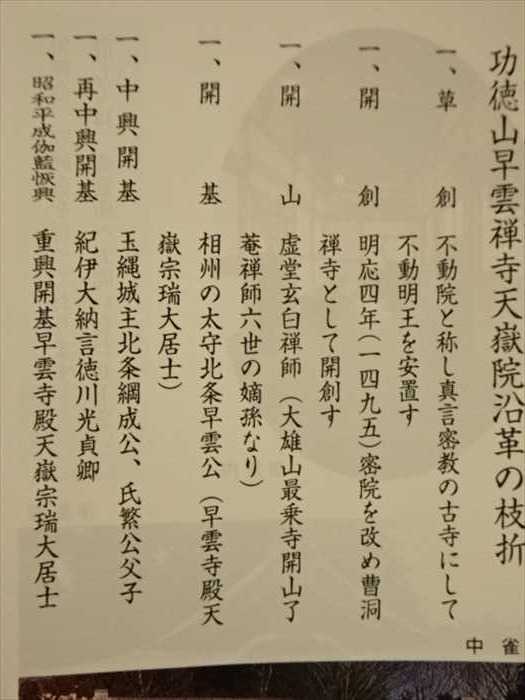 功徳山早雲禅寺天嶽院沿革の枝折
一、草創 不動院と称し真言密教の古寺にして
不動明王を安置す
一、開創 明応四年(一四九五)密院を改め曹洞
禅寺として開創す
一、開山 虚堂玄白禅師(大雄山最乗寺開山了
菴禅師六世の嫡孫なり)
一、開基 相州の太守北条早雲公(早雲寺殿天
嶽宗瑞大居士)
一、中興開基 玉縄城主北条綱成公、氏繁公父子
一、再中興開基 紀伊大納言徳川光貞卿
一、昭和平成伽藍恢興 重興開基早雲寺殿天嶽宗瑞大居士
中雀